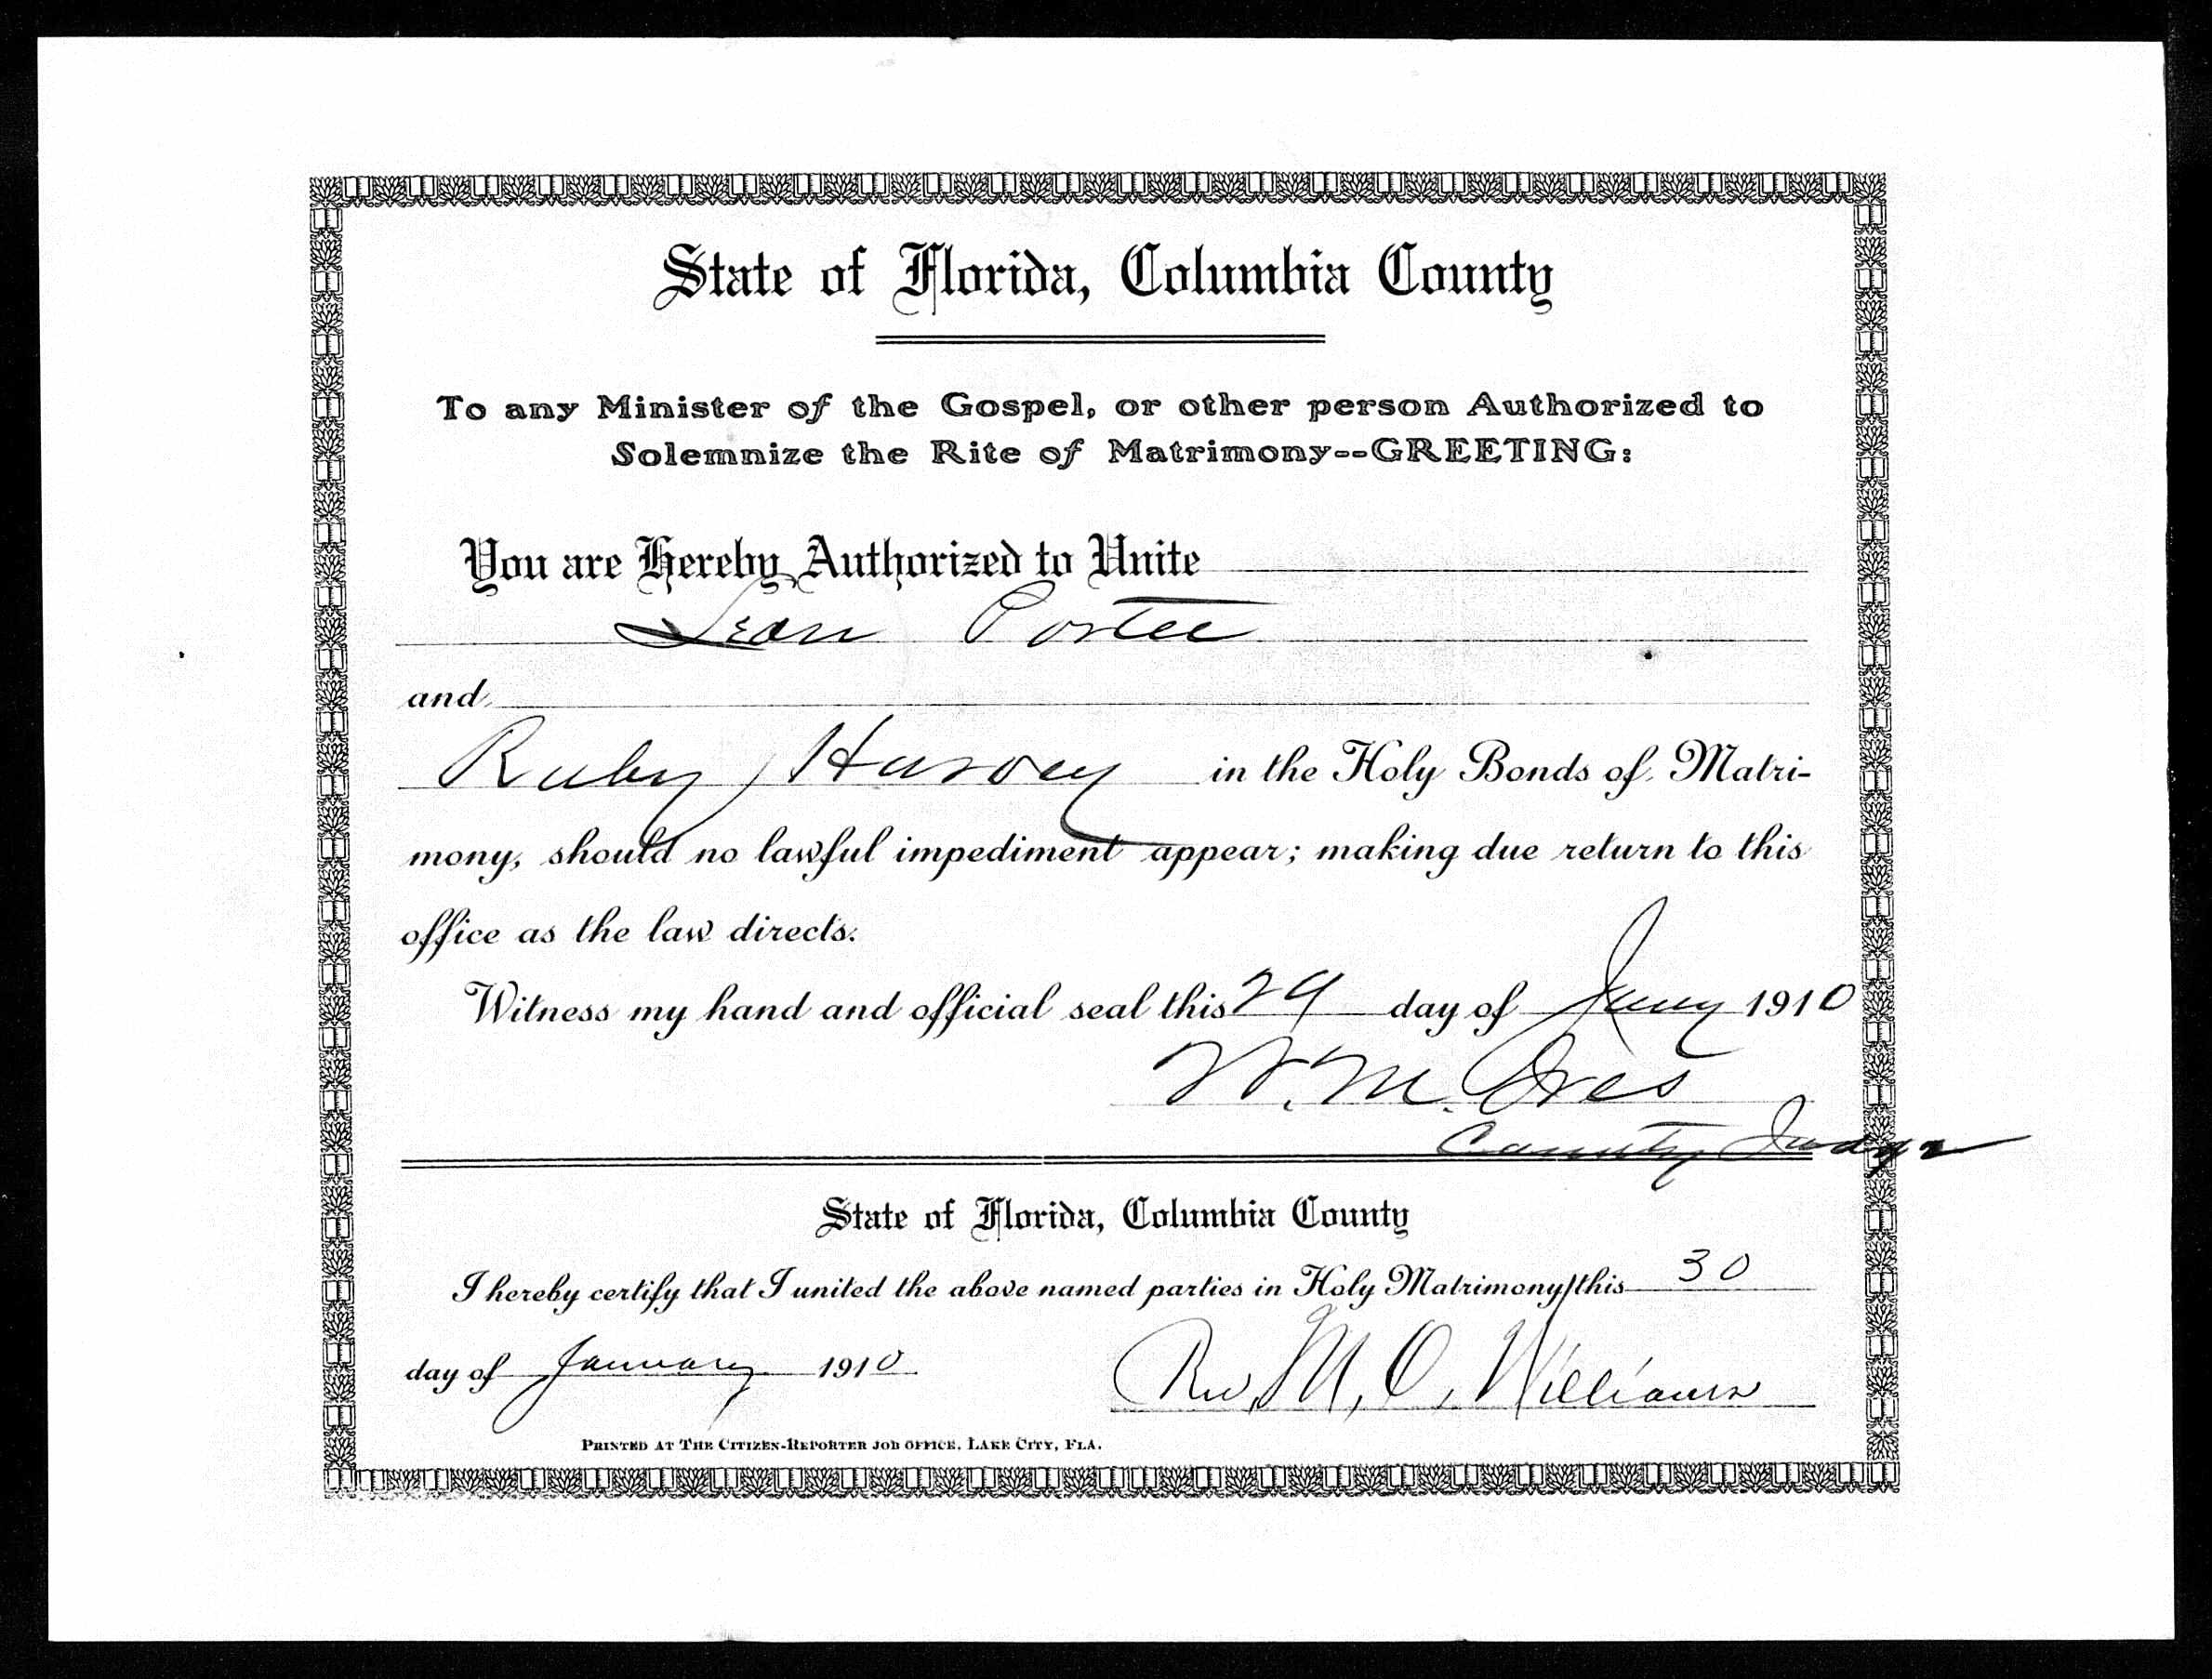 State of Florida, Columbia County
To any Minister of the Gospel, or other person Authorized to
Solemnize the Rite of Matrimony--GREETING:
You are Hereby Authorized to Unite
Leon Portee
and
Ruby Harvey in the Holy Bonds of Matri-
mony, should no lawful impediment appear; making due return to this
office as the law directs.
Witness my hand and official seal this 29 day of Jany 1910
W. M. Ives
County Judge
State of Florida, Columbia County
I hereby certify that I united the above named parties in Holy Matrimony this 30
day of January 1910 Rev. M. O. Williams
PRINTED AT THE CITIZEN-REPORTER JOB OFFICE, LAKE CITY, FLA.